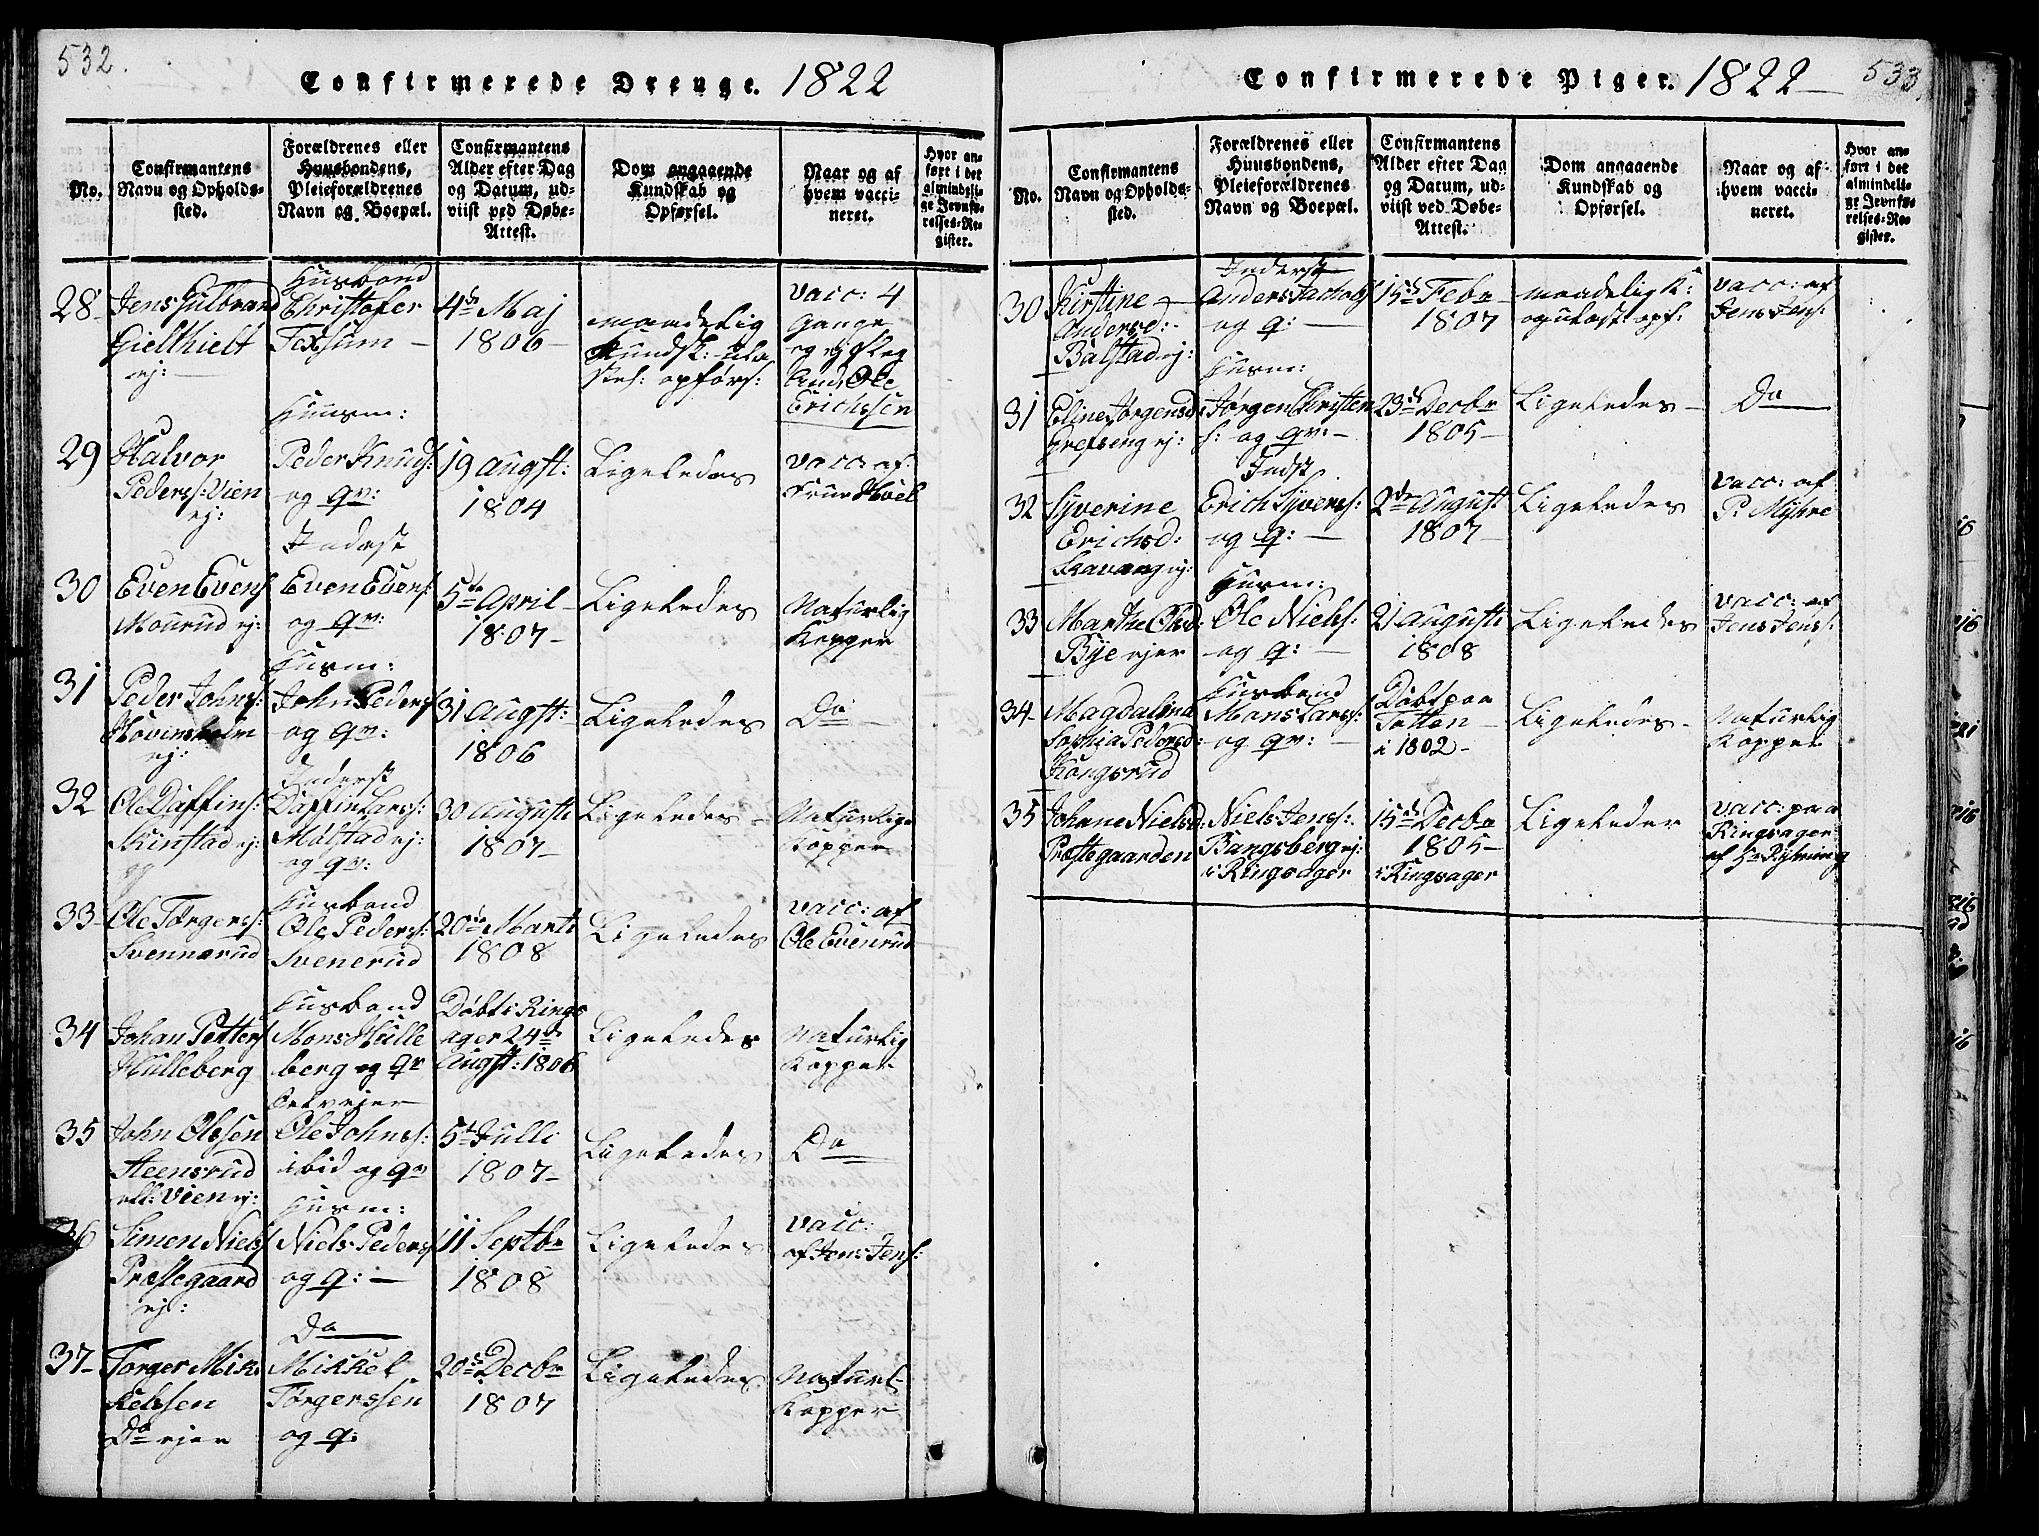 532.
Confirmerede Drenge. 1822
No.
Confirmantens
Navn og Opholds-
sted.
Forældrenes eller
Huusbondens,
Pleieforældrenes
Navn og Boepæl.
Confirmantens
Alder efter Dag
og Datum, ud-
viist ved Døbe-
Attest.
Dom angaaende
Kundskab og
Opførsel.
Naar og af
hvem vacci-
neret.
Hvor an-
ført i det
almindeli-
ge Jevnfø-
relses-Re-
gister.
28
Jens Gulbrand
Gielthielt
ej:
Husbond
Christofer
Texsum
4de Maj
1806
maadelig
Kundsk:
opførs:
vacc: 4
Gange
og ej slog
an, Ole
Erichssen
29
Halvor
Peders: Vien
ej:
Huusm:
Peder Knuds:
og qv:
19 Augst:
1804
Ligeledes
vacc: af
Frue Høel
30
Even Evens:
Mourud ej:
Inderst
Even Evens:
og qv:
5te April
1807
Ligeledes
Naturlig
Kopper
31
Peder Johns:
Hovinsholm
ej:
Husm:
John Peders:
og qv:
31 Augst:
1806
Ligeledes
Do
32
Ole Daffins:
Skinstad ej:
Inderst
Daffin Lars:
Molstad ej:
og qv:
30 August
1807
Ligeledes
Naturlige
Kopper
33
Ole Torgers:
Svennerud
Husbond
Ole Peders:
Svenerud
20de Marti
1808
Ligeledes
vacc: af
Ole Evenrud
34
Johan Petters:
Hulleberg
Husbond
Mons Hulle
berg og qv
Døbt i Rings
ager 24de
Augst: 1806
Ligeledes
Naturlig
Kopper
35
John Olssen
Steensrud
ell: Vien ej:
Selvejer
Ole Johns:
ibid og qv
5te Julli
1807
Ligeledes
Do
36
Simen Niels:
Præstegaard
ej:
Husm:
Niels Peders:
og q:
11 Septbr
1808
Ligeledes
vacc:
af Jens Jens:
37
Torger Mik
kelssen
Do ejer
Do
Mikkel
Torgerssen
og q:
20de Decbr
1807
Ligeledes
Naturl
Kopper
533
Confirmerede Piger. 1822
No.
Confirmantens
Navn og Opholds-
sted.
Forældrenes eller
Huusbondens,
Pleieforældrenes
Navn og Boepæl.
Confirmantens
Alder efter Dag
og Datum, ud-
viist ved Døbe-
Attest.
Dom angaaende
Kundskab og
Opførsel.
Naar og af
hvem vacci-
neret.
Hvor an-
ført i det
almindeli-
ge Jevnfø-
relses-Re-
gister.
30
Kirstine
Andersd:
Balstad ej:
Inderst
Anders Jacobs:
og q:
15de Febr
1807
maadelig K:
og ulast: opf:
vacc: af
Jens Jens:
31
Eline Jørgensd:
Grefseng ej:
Husm:
Jørgen Christen
s: og qv:
23de Decbr
1805
Ligeledes
Do
32
Syverine
Erichsd:
Skavang ej:
Indst
Erich Syvers:
og q:
2de August
1807
Ligeledes
vacc: af
P: Myhre
33
Marthe Olsd:
Bye ejer
Husm:
Ole Niels:
og q:
21 August
1808
Ligeledes
vacc: af
Jens Jens:
34
Magdalina
Sophia Pedersd:
Kongsrud
Husbond
Mons Lars:
og qv:
Døbt paa
Totten
i 1802
Ligeledes
Naturlig
Kopper
35
Johane Nielsd:
Præstegaarden
Niels Jens:
Bangsberg ej:
i Ringsager
15de Decbr
1805
i Ringsager
Ligeleder
vacc: paa
Ringsager
af Hr